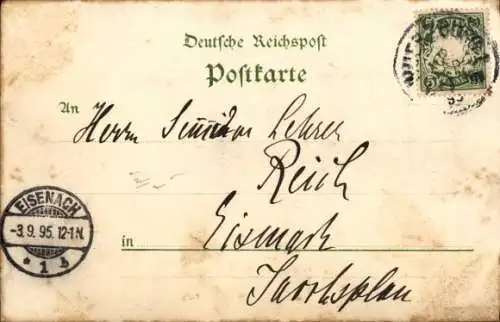 Deutsche Reichspost
Postkarte
An Herrn Seminar Lehrer
Reich
in Eisenach
EISENACH
-3.9.95. 12-1.N.
* 1 b